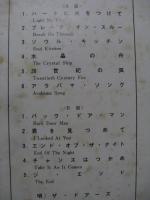 〔A面〕
1 ハートに火をつけて
Light My Fire
2 ブレーク・オン・スルー
Break On Through
3 ソウル・キッチン
Soul Kitchen
4 水晶の舟
The Crystal Ship
5 20世紀の狐
Twentieth Century Fox
6 アラバマ・ソング
Alabama Song
〔B面〕
1 バック・ドア・マン
Back Door Man
2 君を見つめて
I Looked At You
3 エンド・オブ・ナイト
End Of The Night
4 チャンスはつかめ
Take It As It Comes
5 ジ・エンド
The End
唄) ザ・ドアーズ